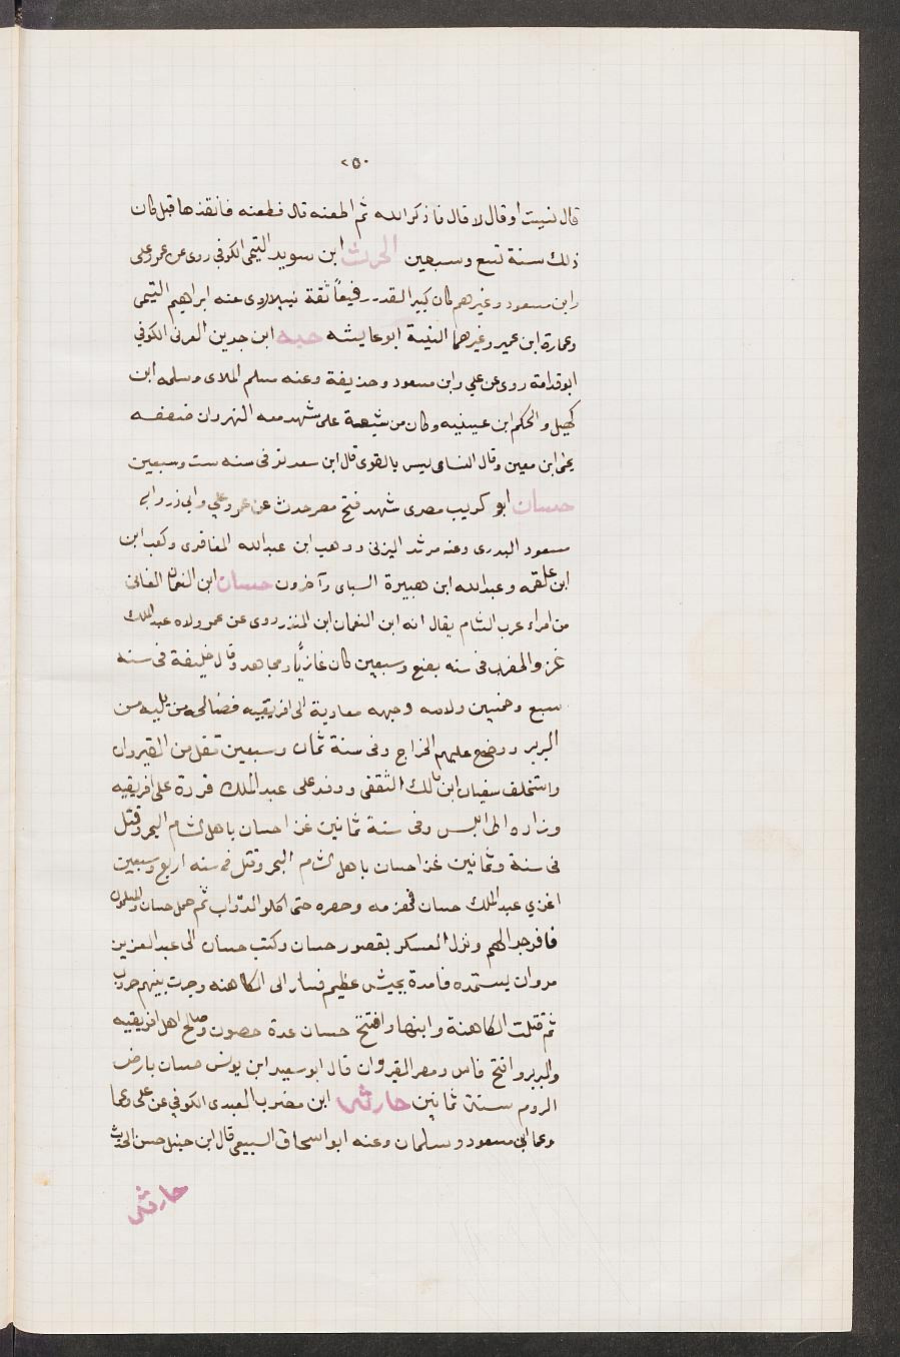 ٢٥٠
قال نسيت او قال لا قال فاذكر الله ثم اطعنه قال فطعنه فانقذها قبل كان
ذلك سنة تسع وسبعين الحرث ابن سويد التيمى الكوفي روى عن عمر وعلى
وابن مسعود وغيرهم كان كبير القدر رفيعاً ثقة نبيلا روى عنه ابراهيم التيمى
وعمارة ابن عمير وغيرهما ابو عايشه حبه ابن جوين العرنى الكوفي
ابو قدامة روى عن علي وابن مسعود وحذيفة وعنه مسلم الملاى وسلمه ابن
كهيل والحكم ابن عيينه وكان من شيعة على شهد معه النهروان ضعفه
يحى ابن معين وقال النساى ليس بالقوى قال ابن سعد توفى سنه ست وسبعين
حسان ابو كريب مصرى شهد فتح مصر حدث عن عمر وعلي وابى ذر وابى
مسعود البدرى وعنه مرثد اليزنى ووهب ابن عبدالله المغافرى وكعب ابن
ابن علقمه وعبدالله ابن هبيرة السباى وآخرون حسان ابن النعمان الغسانى
من امراء عرب الشام يقال انه ابن النعمان ابن المنذر روى عن عمر ولاه عبد الملك
غزو المغرب فى سنه بضع وسبعين كان غازيًا ومجاهد وقال خليفة فى سنه
سبع وخمسين وجهه معاوية الى افريقيه فصالحه من يليه من
البربر ووضع عليهم الخراج وفى سنة ثمان وسبعين قفل من القيروان
واستخلف سفيان ابن مالك الثقفى ووفد على عبد الملك فرده على افريقيه
وزاده اطرابلس وفى سنة ثمانين غزا حسان باهل الشام البحر وقتل
فى سنة وثمانين غزا حسان باهل الشام البحر وقتل فى سنه اربع وسبعين
اغزي عبد الملك حسان فهزمه وحصره حتى اكلو الدوّاب ثم حمل حسان والمسلمون
فافرجوا لهم ونزل العسكر بقصور حسان وكتب حسان الى عبد العزيز
مروان يستمده فامده بجيش عظيم فسار الى الكاهنه وجرت بينهم حروب
ثم قتلت الكاهنة وابنها وافتتح حسان عدة حصون وصالح اهل افريقيه
والبربر وافتح فاس ومصر القيروان قال ابو سعيد ابن يونس حسان بارض
الروم سنة ثمانين حارثه ابن مضرب العبدى الكوفي عن على وعما
وعما ابى مسعود وسلمان وعنه ابو اسحاق السبيعى قال ابن حنبل حسن الحديث
حارثه